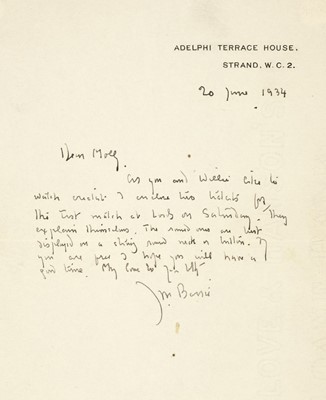 ADELPHI TERRACE HOUSE,
STRAND, W.C. 2.
20 June 1934
Dear Molly.
As you and Willie like to
watch cricket I enclose two tickets for
the Test match at Lords on Saturday. They
explain themselves. The round one are best
displayed on a string round neck or button. If
you are free I hope you will have a
good time. My love to you both
J M Barrie